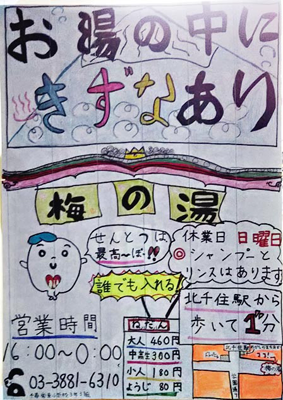 お湯の中に
きずなあり
梅の湯
せんとうは
最高〜ぽ!!
休業日 日曜日
◎シャンプーと
リンスはあります
誰でも入れる
営業時間
16:00〜0:00
03-3881-6310
ねだん
大人 460円
中高生 300円
小人 180円
ようじ 80円
北千住駅から
歩いて1分